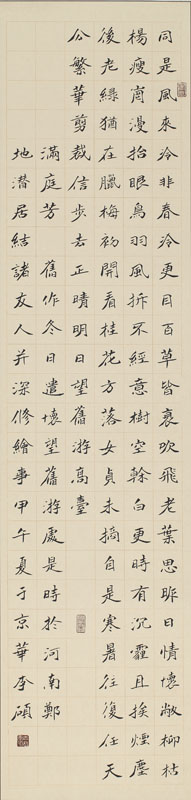 同是風來冷非春冷更目百草皆衰吹飛老葉思昨日情懷敝柳枯
楊瘦漫抬眼鳥羽風拆不經意樹空幹白更時有沉霾且挨煙塵
後老綠猶在臘梅初開看桂花方落女貞未摘自是寒暑往復任天
公繁華剪裁信步去正晴明日望舊游高臺
滿庭芳 舊作冬日遣懷望舊游處是時於河南鄭
地潛居結諸友人并深修繪事甲午夏于京華李碩